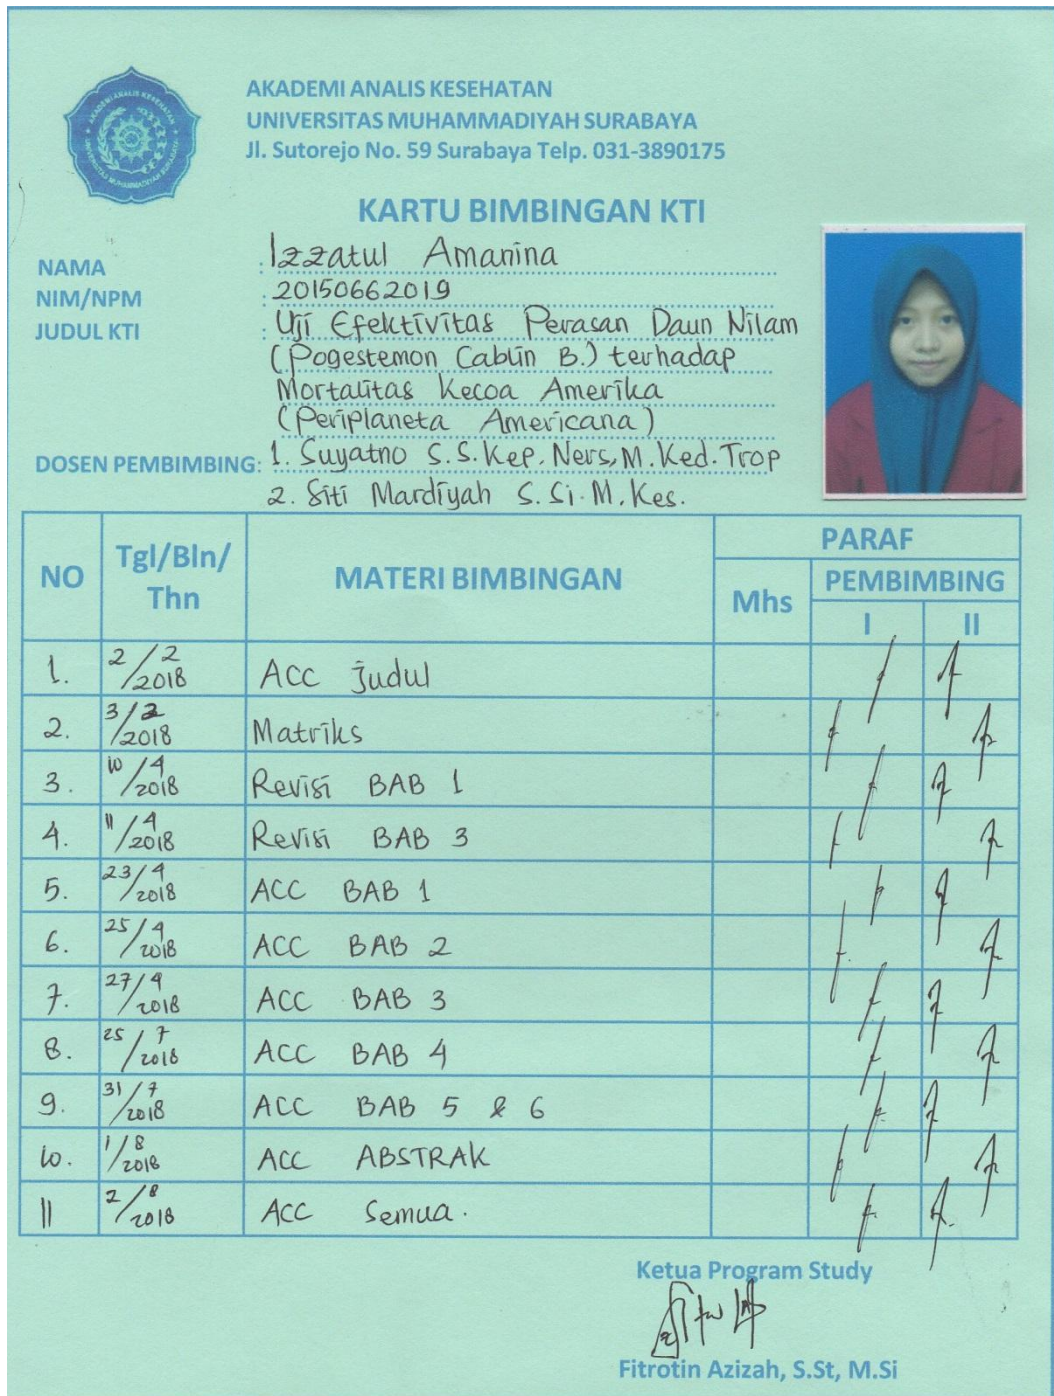 AKADEMI ANALIS KESEHATAN
UNIVERSITAS MUHAMMADIYAH SURABAYA
AKADEMI ANALIS KESEHATAN
UNIVERSITAS MUHAMMADIYAH SURABAYA
Jl. Sutorejo No. 59 Surabaya Telp. 031-3890175
KARTU BIMBINGAN KTI
NAMA : Izzatul Amanina
NIM/NPM : 20150662019
JUDUL KTI : Uji Efektivitas Perasan Daun Nilam
(Pogestemon Cablin B.) terhadap
Mortalitas Kecoa Amerika
(Periplaneta Americana)
DOSEN PEMBIMBING: 1. Suyatno S.S.Kep.Ners,M.Ked.Trop
2. Siti Mardiyah S.Si.M.Kes.
NO Tgl/Bln/Thn MATERI BIMBINGAN PARAF
Mhs PEMBIMBING
I II
1. 2/2/2018 ACC judul
2. 3/2/2018 Matriks
3. 10/4/2018 Revisi BAB 1
4. 11/4/2018 Revisi BAB 3
5. 23/4/2018 ACC BAB 1
6. 25/4/2018 ACC BAB 2
7. 27/4/2018 ACC BAB 3
8. 25/7/2018 ACC BAB 4
9. 31/7/2018 ACC BAB 5 & 6
10. 1/8/2018 ACC ABSTRAK
11 2/8/2018 ACC Semua.
Ketua Program Study
Fitrotin Azizah, S.St, M.Si